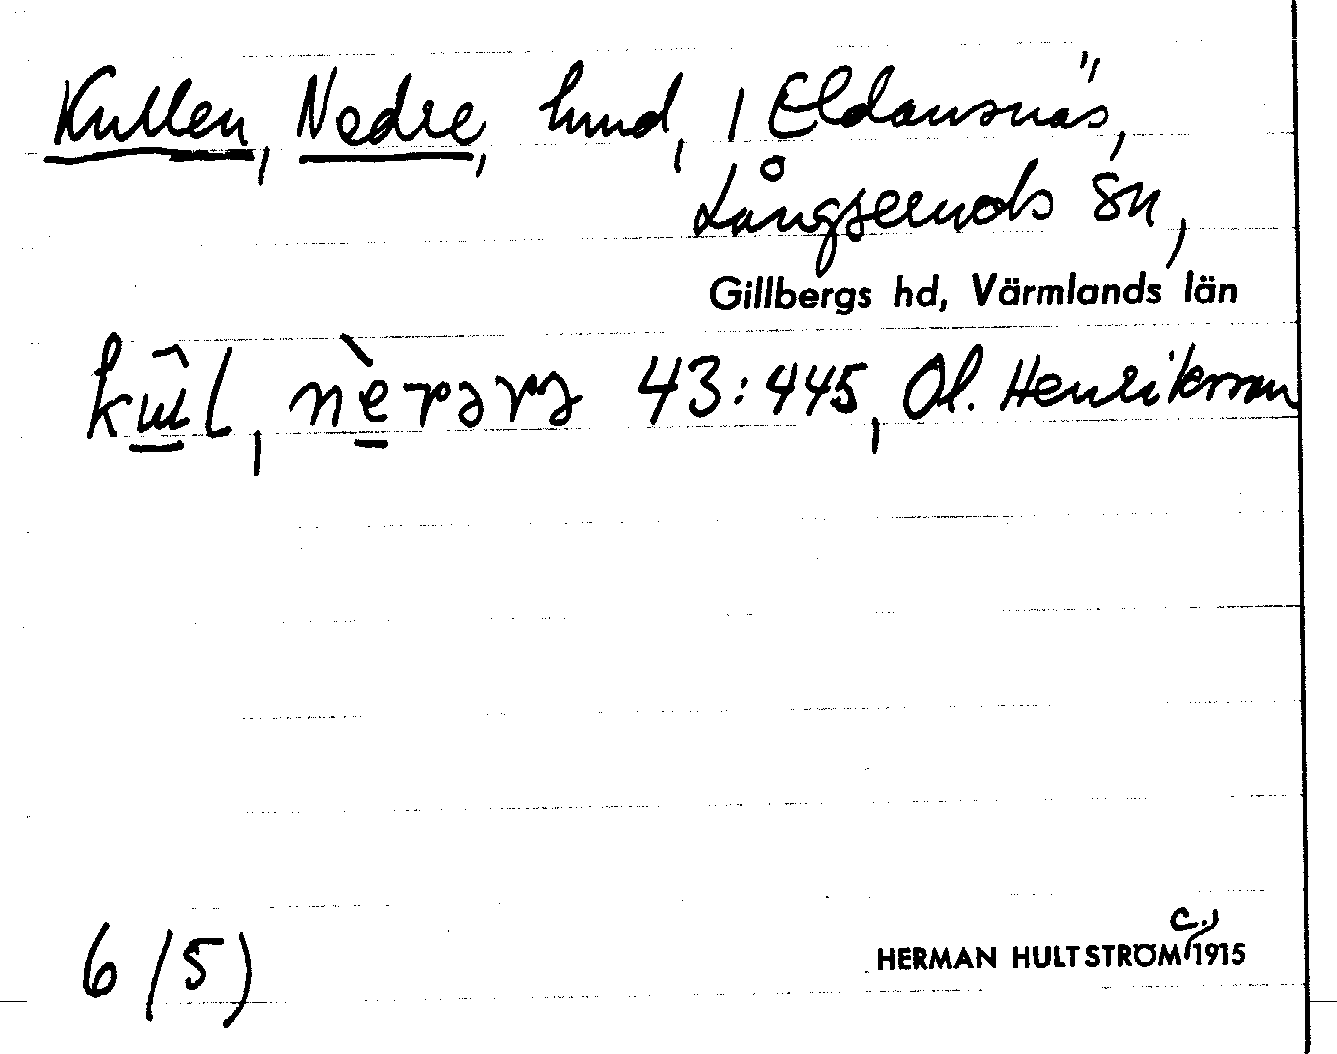 Kullen, Nedre, hmd, i Eldansnäs,
Långseruds sn,
Gillbergs hd, Värmlands län
43:445, Ol. Henriksson
6 (5)
HERMAN HULTSTRÖM c. 1915